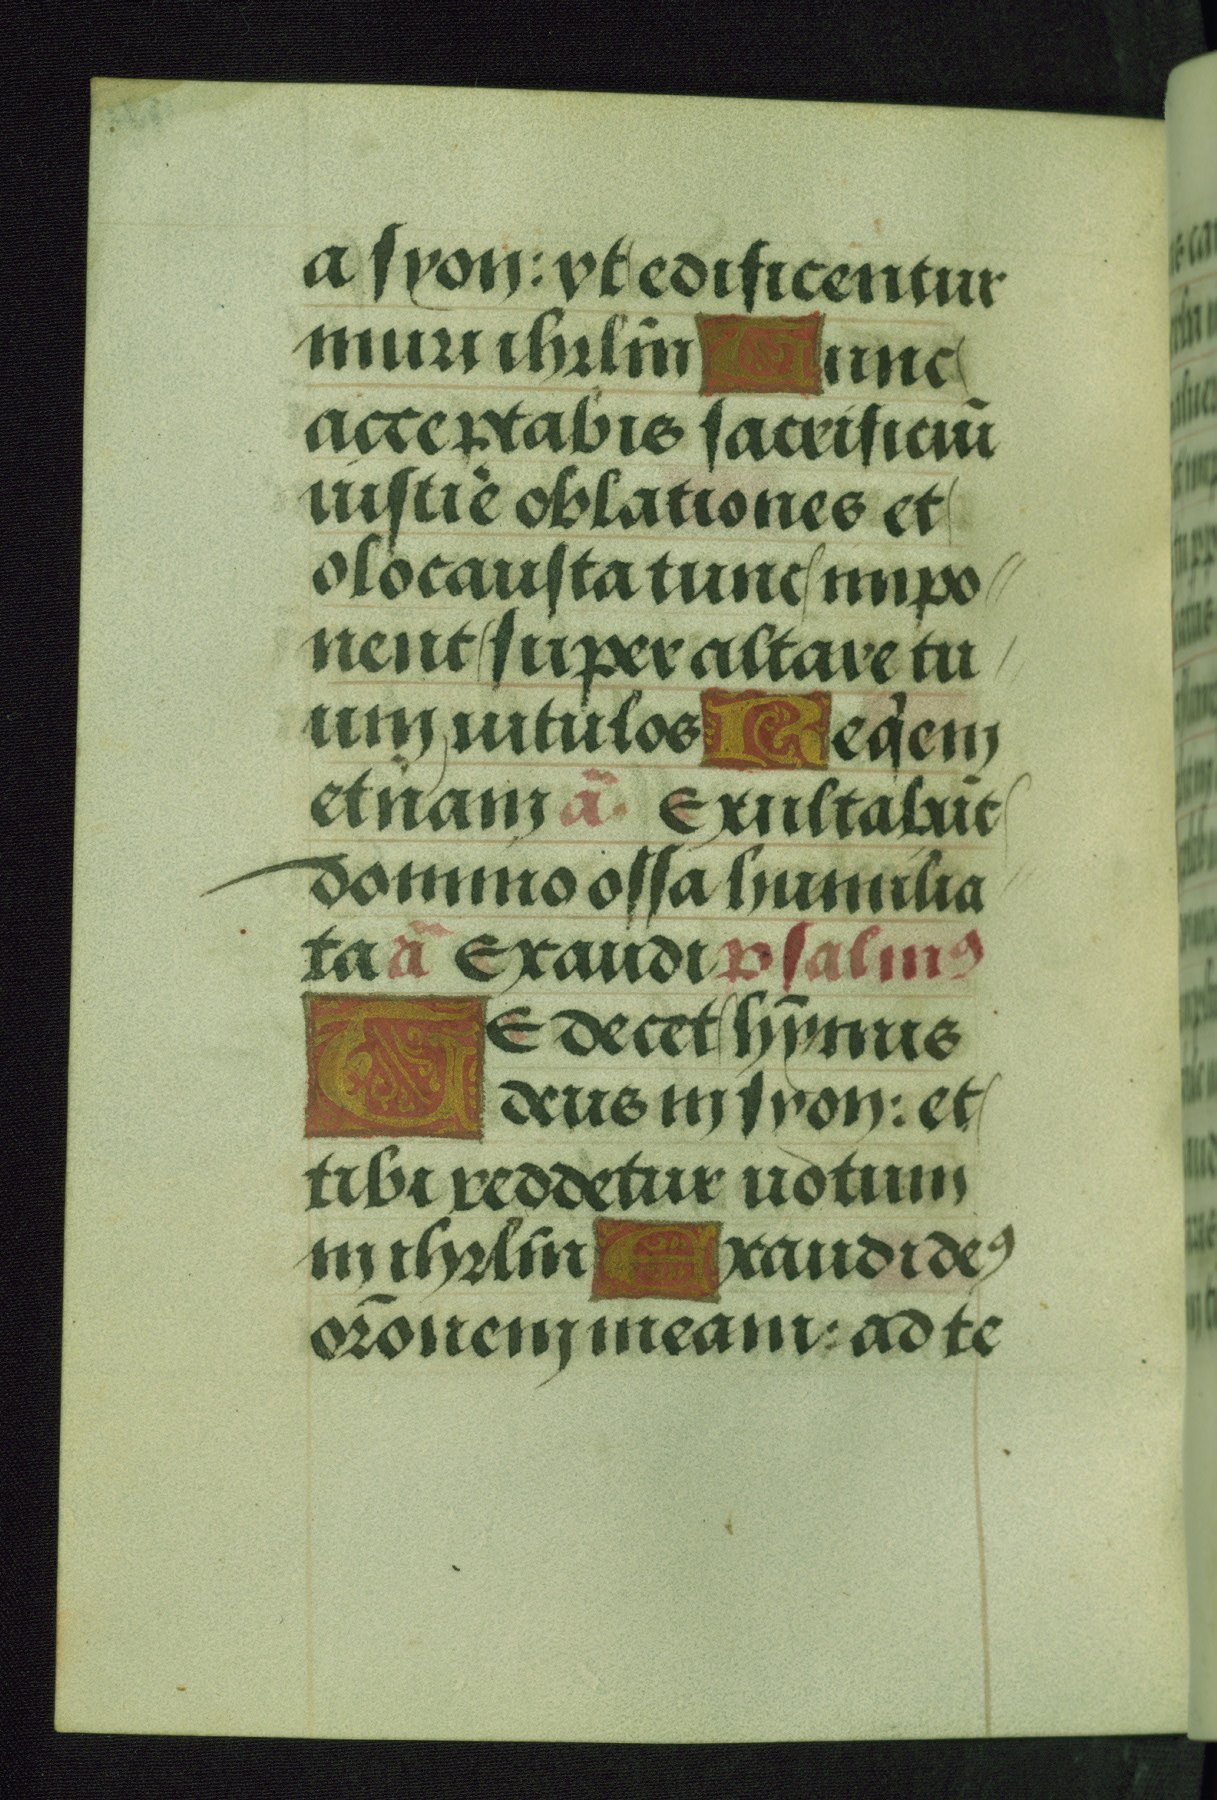 a syon: vt edificentur
muri ihrl̄m Tunc
acceptabis sacrificiū
iustiē oblationes et
olocausta tunc impo
nent super altare tu
um uitulos Req̄em
et̄nam ā. Exultabūt
domino ossa humilia
ta ā Exaudi psalmꝰ
TE decet hȳmus
deus in syon: et
tibi reddetur uotum
in ihrl̄m Exaudi deꝰ
or̄onem meam: ad te